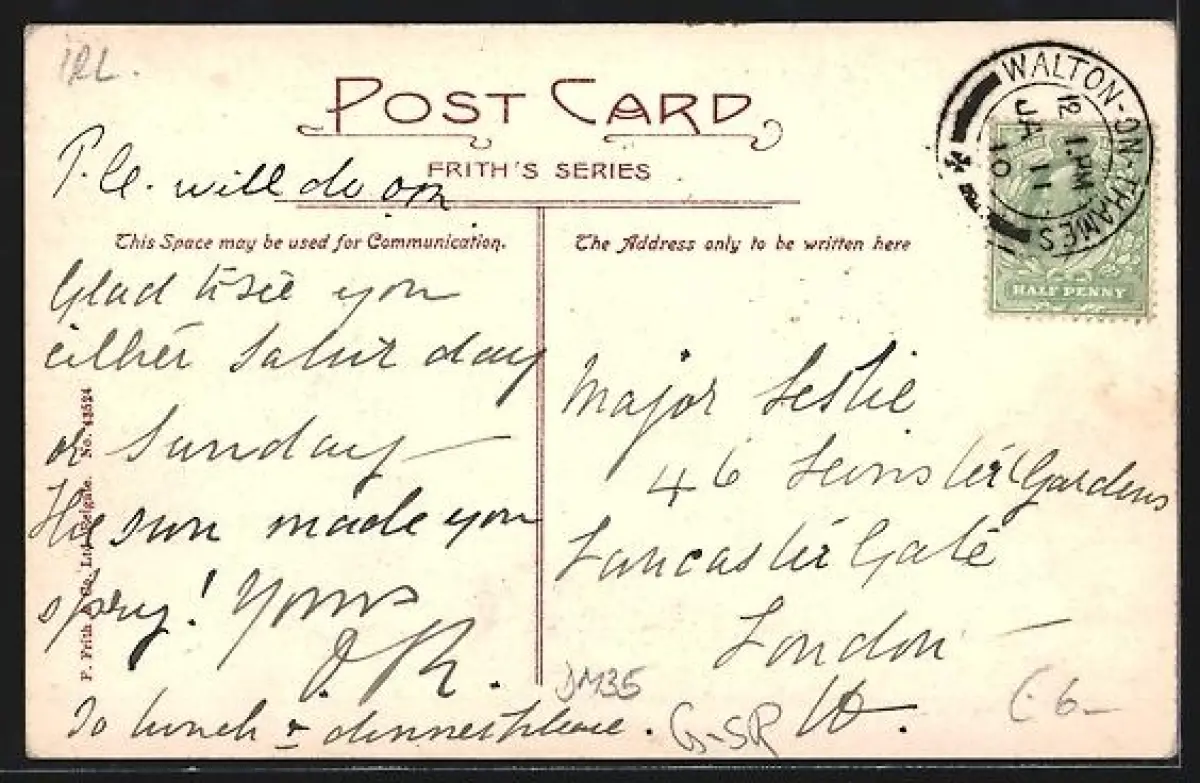 IRL.
POST CARD
FRITH'S SERIES
P.C. will do
This Space may be used for Communication.
The Address only to be written here
WALTON-ON-THAMES
12 1.PM
JA 11
10
HALF PENNY
Glad to see you
either Saturday
or Sunday —
The sun made you
spry! Yours
J.R.
To lunch & dinner please.
Major Leslie
46 Leinster Gardens
Lancaster Gate
London —
W.
F. Frith & Co. Ltd. Reigate. No. 43524
DM35
G-SR